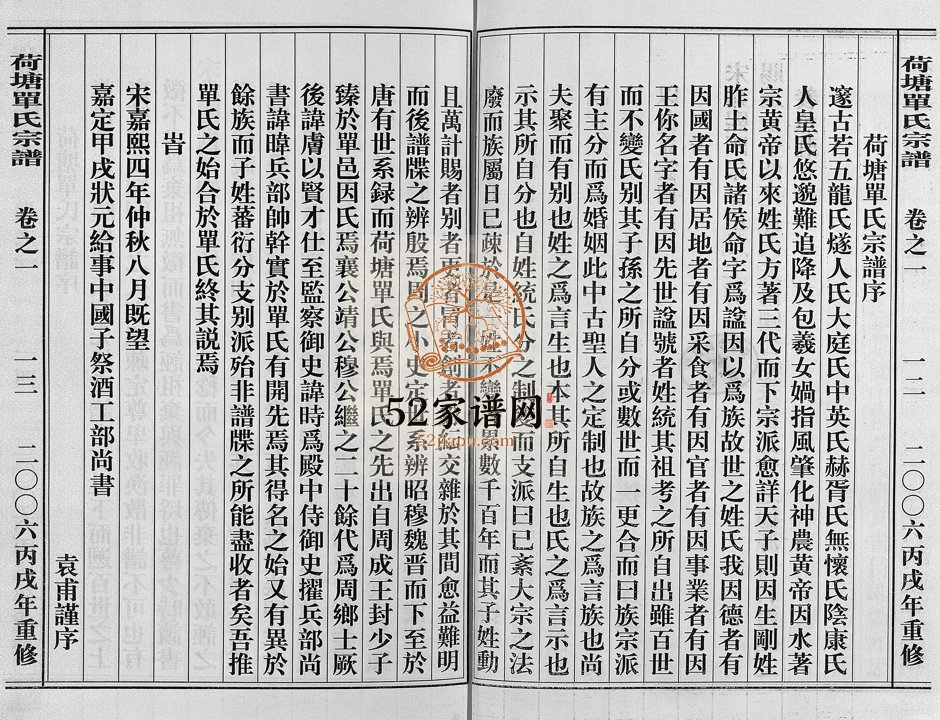 荷塘單氏宗譜 卷之一 一二 二〇〇六丙戌年重修
荷塘單氏宗譜序
邃古若五龍氏燧人氏大庭氏中英氏赫胥氏無懷氏陰康氏
人皇氏悠邈難追降及包羲女媧指風肇化神農黄帝因水著
宗黄帝以來姓氏方著三代而下宗派愈詳天子則因生剛姓
胙土命氏諸侯命字爲諡因以爲族故世之姓氏我因德者有
因國者有因居地者有因采食者有因官者有因事業者有因
王你名字者有因先世諡號者姓統其祖考之所自出雖百世
而不變氏别其子孫之所自分或數世而一更合而曰族宗派
有主分而爲婚姻此中古聖人之定制也故族之爲言族也尚
夫聚而有别也姓之爲言生也本其所自生也氏之爲言示也
示其所自分也自姓統氏分之制 而支派曰已紊大宗之法
廢而族屬日已疎於是 姓不變 數千百年而其子姓動
且萬計賜者别者更者冒者 者 交雜於其間愈益難明
而後譜牒之辨殷焉周之小史定 系辨昭穆魏晋而下至於
唐有世系録而荷塘單氏與焉單氏之先出自周成王封少子
臻於單邑因氏焉襄公靖公穆公繼之二十餘代爲周鄉士厥
後諱膚以賢才仕至監察御史諱時爲殿中侍御史擢兵部尚
書諱暐兵部帥幹實於單氏有開先焉其得名之始又有異於
餘族而子姓蕃衍分支别派殆非譜牒之所能盡收者矣吾推
單氏之始合於單氏終其説焉
旹
宋嘉熙四年仲秋八月既望
嘉定甲戌狀元給事中國子祭酒工部尚書
袁甫謹序
荷塘單氏宗譜 卷之一 一三 二〇〇六丙戌年重修
52家谱网
52jiapu.com